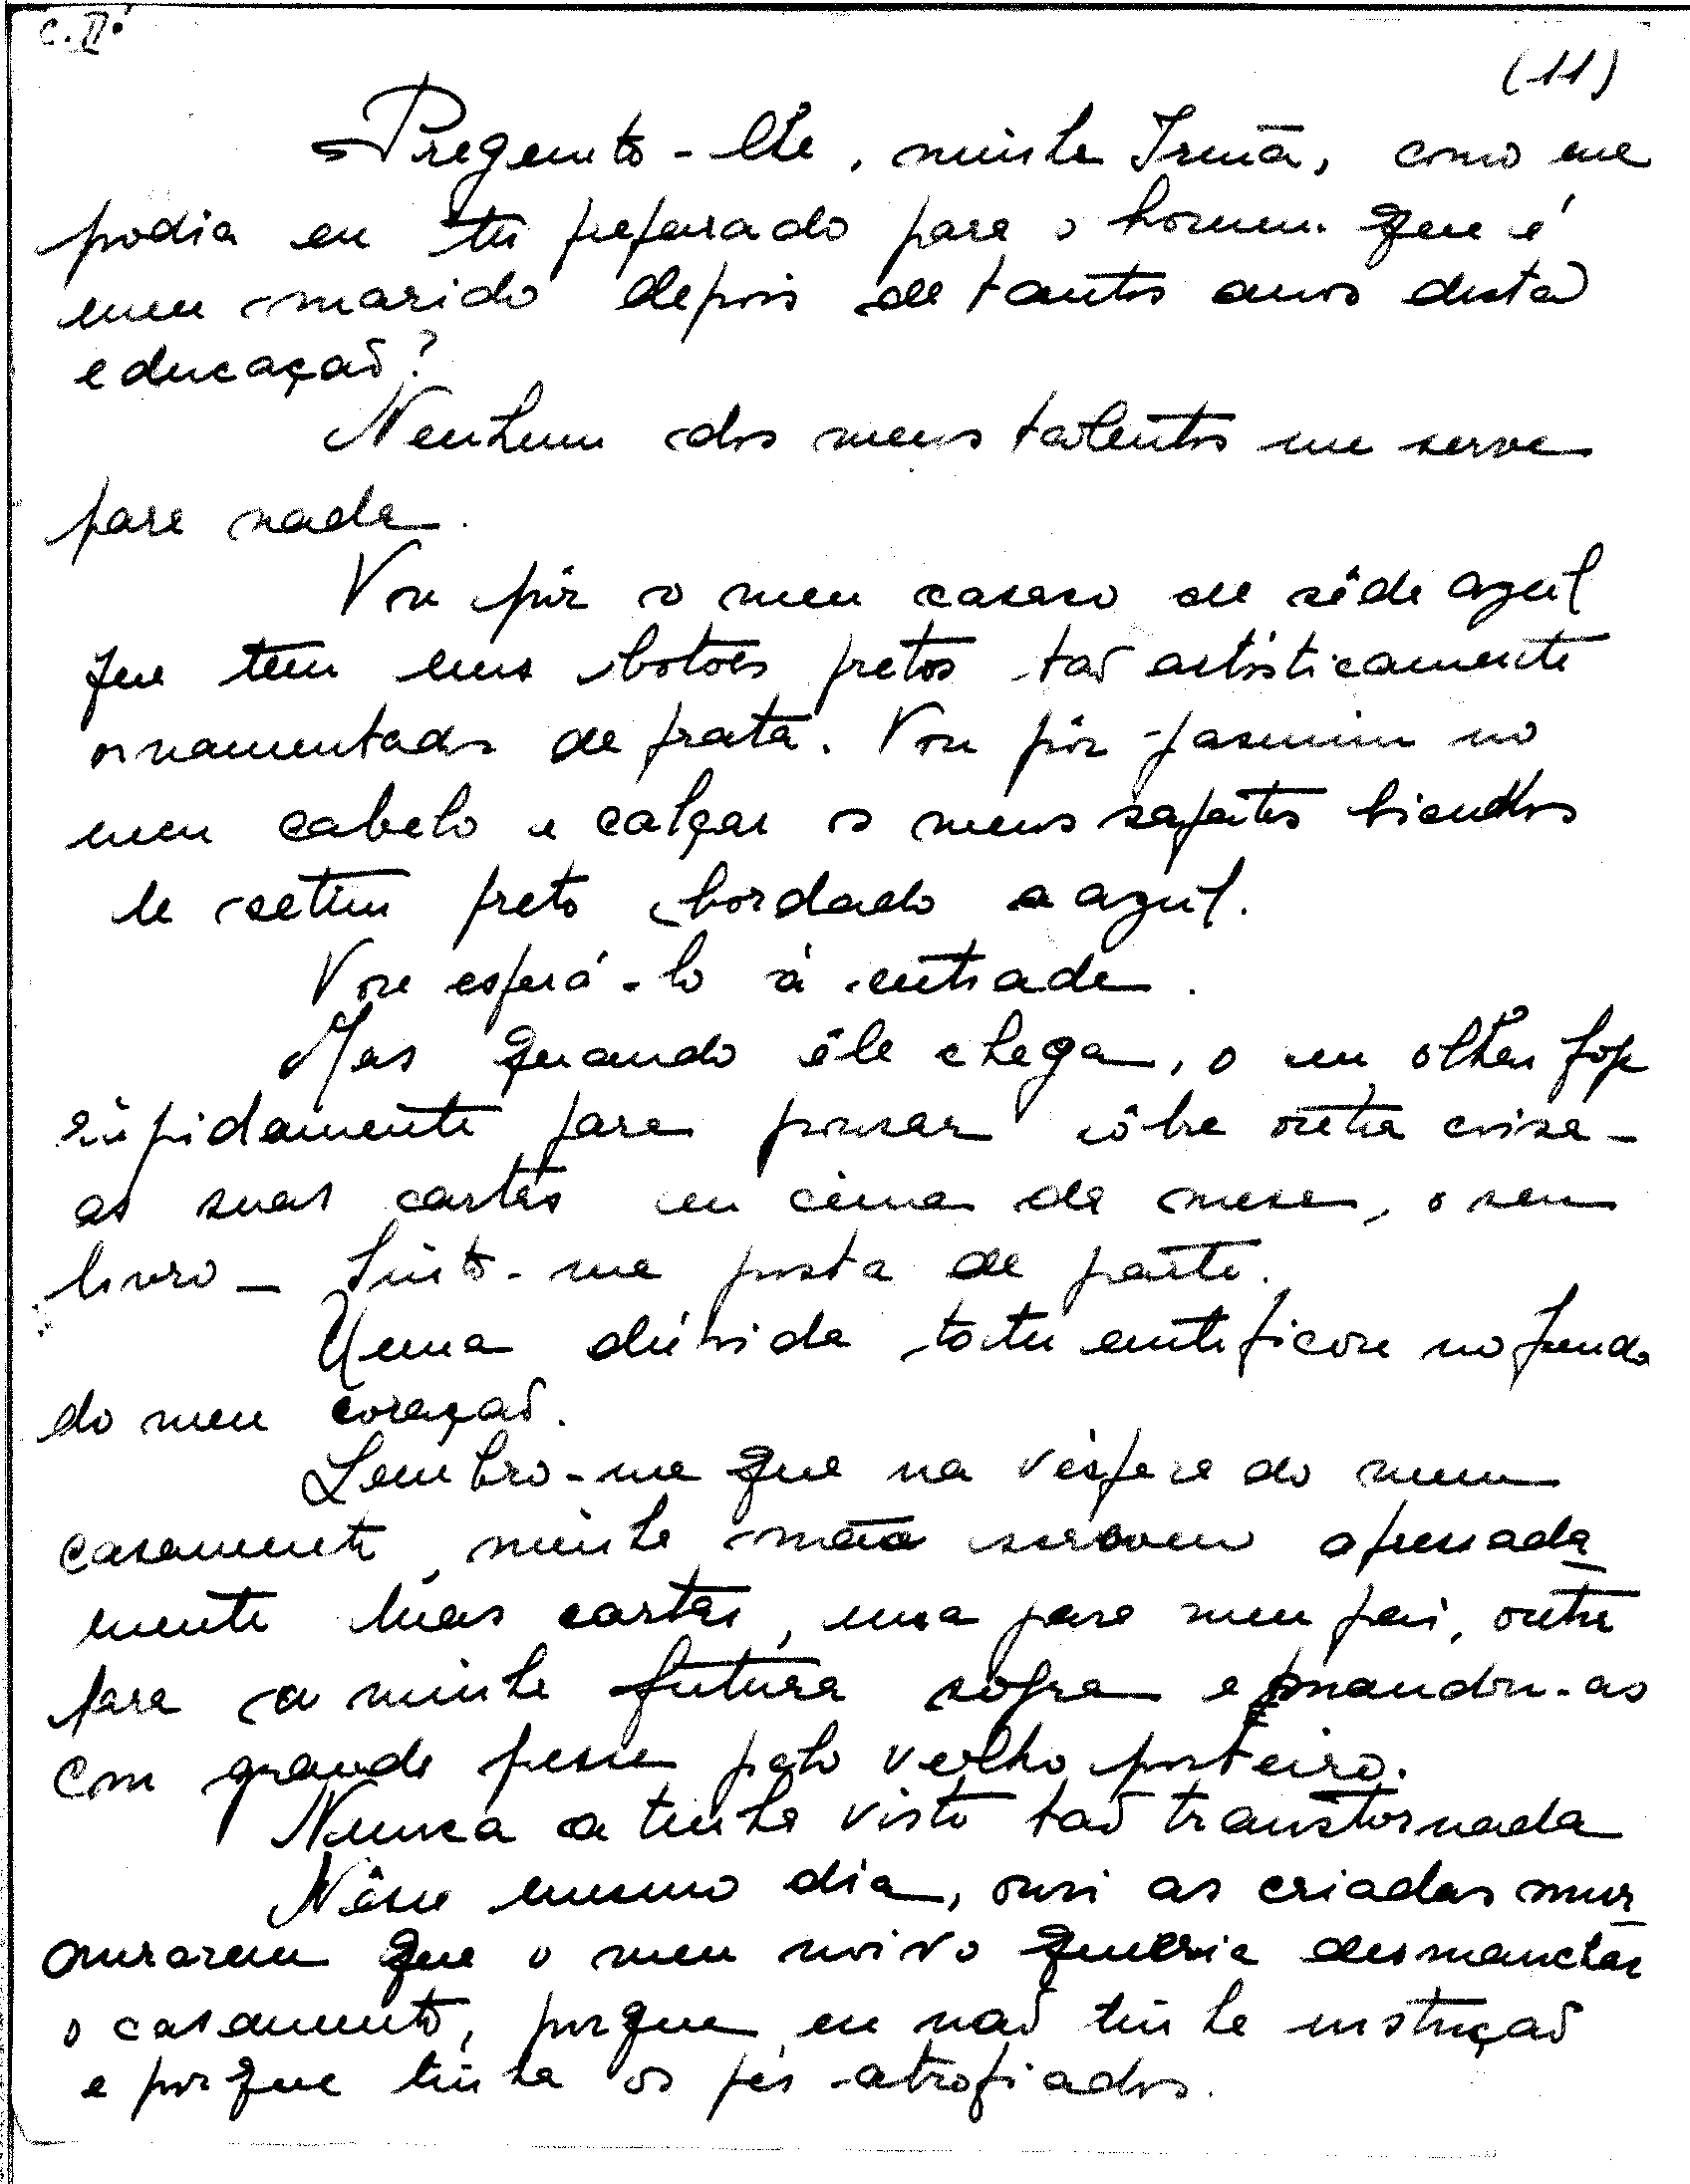 C. II.
(11)
Pregunto-lhe, minha Irmã, como me
podia eu ter preparado para o homem que é
meu marido depois de tantos anos desta
educação?
Nenhum dos meus talentos me serve
para nada.
Vou pôr o meu casaco de sêda azul
que tem uns botões pretos tão artìsticamente
ornamentados de prata. Vou pôr jasmim no
meu cabelo e calçar os meus sapatos bicudos
de setim preto bordado a azul.
Vou esperá-lo à entrada.
Mas quando êle chega, o seu olhar foge
ràpidamente para pousar sôbre outra coisa —
as suas cartas em cima da mesa, o seu
livro — Sinto-me posta de parte.
Uma dúvida torturante ficou no fundo
do meu coração.
Lembro-me que na véspera do meu
casamento, minha mãe escreveu apressada-
mente duas cartas, uma para meu pai, outra
para a minha futura sogra e mandou-as
com grande pressa pelo velho porteiro.
Nunca a tinha visto tão transtornada
Nêsse mesmo dia, ouvi as criadas mur-
murarem que o meu noivo queria desmanchar
o casamento, porque eu não tinha instrução
e porque tinha os pés atrofiados.